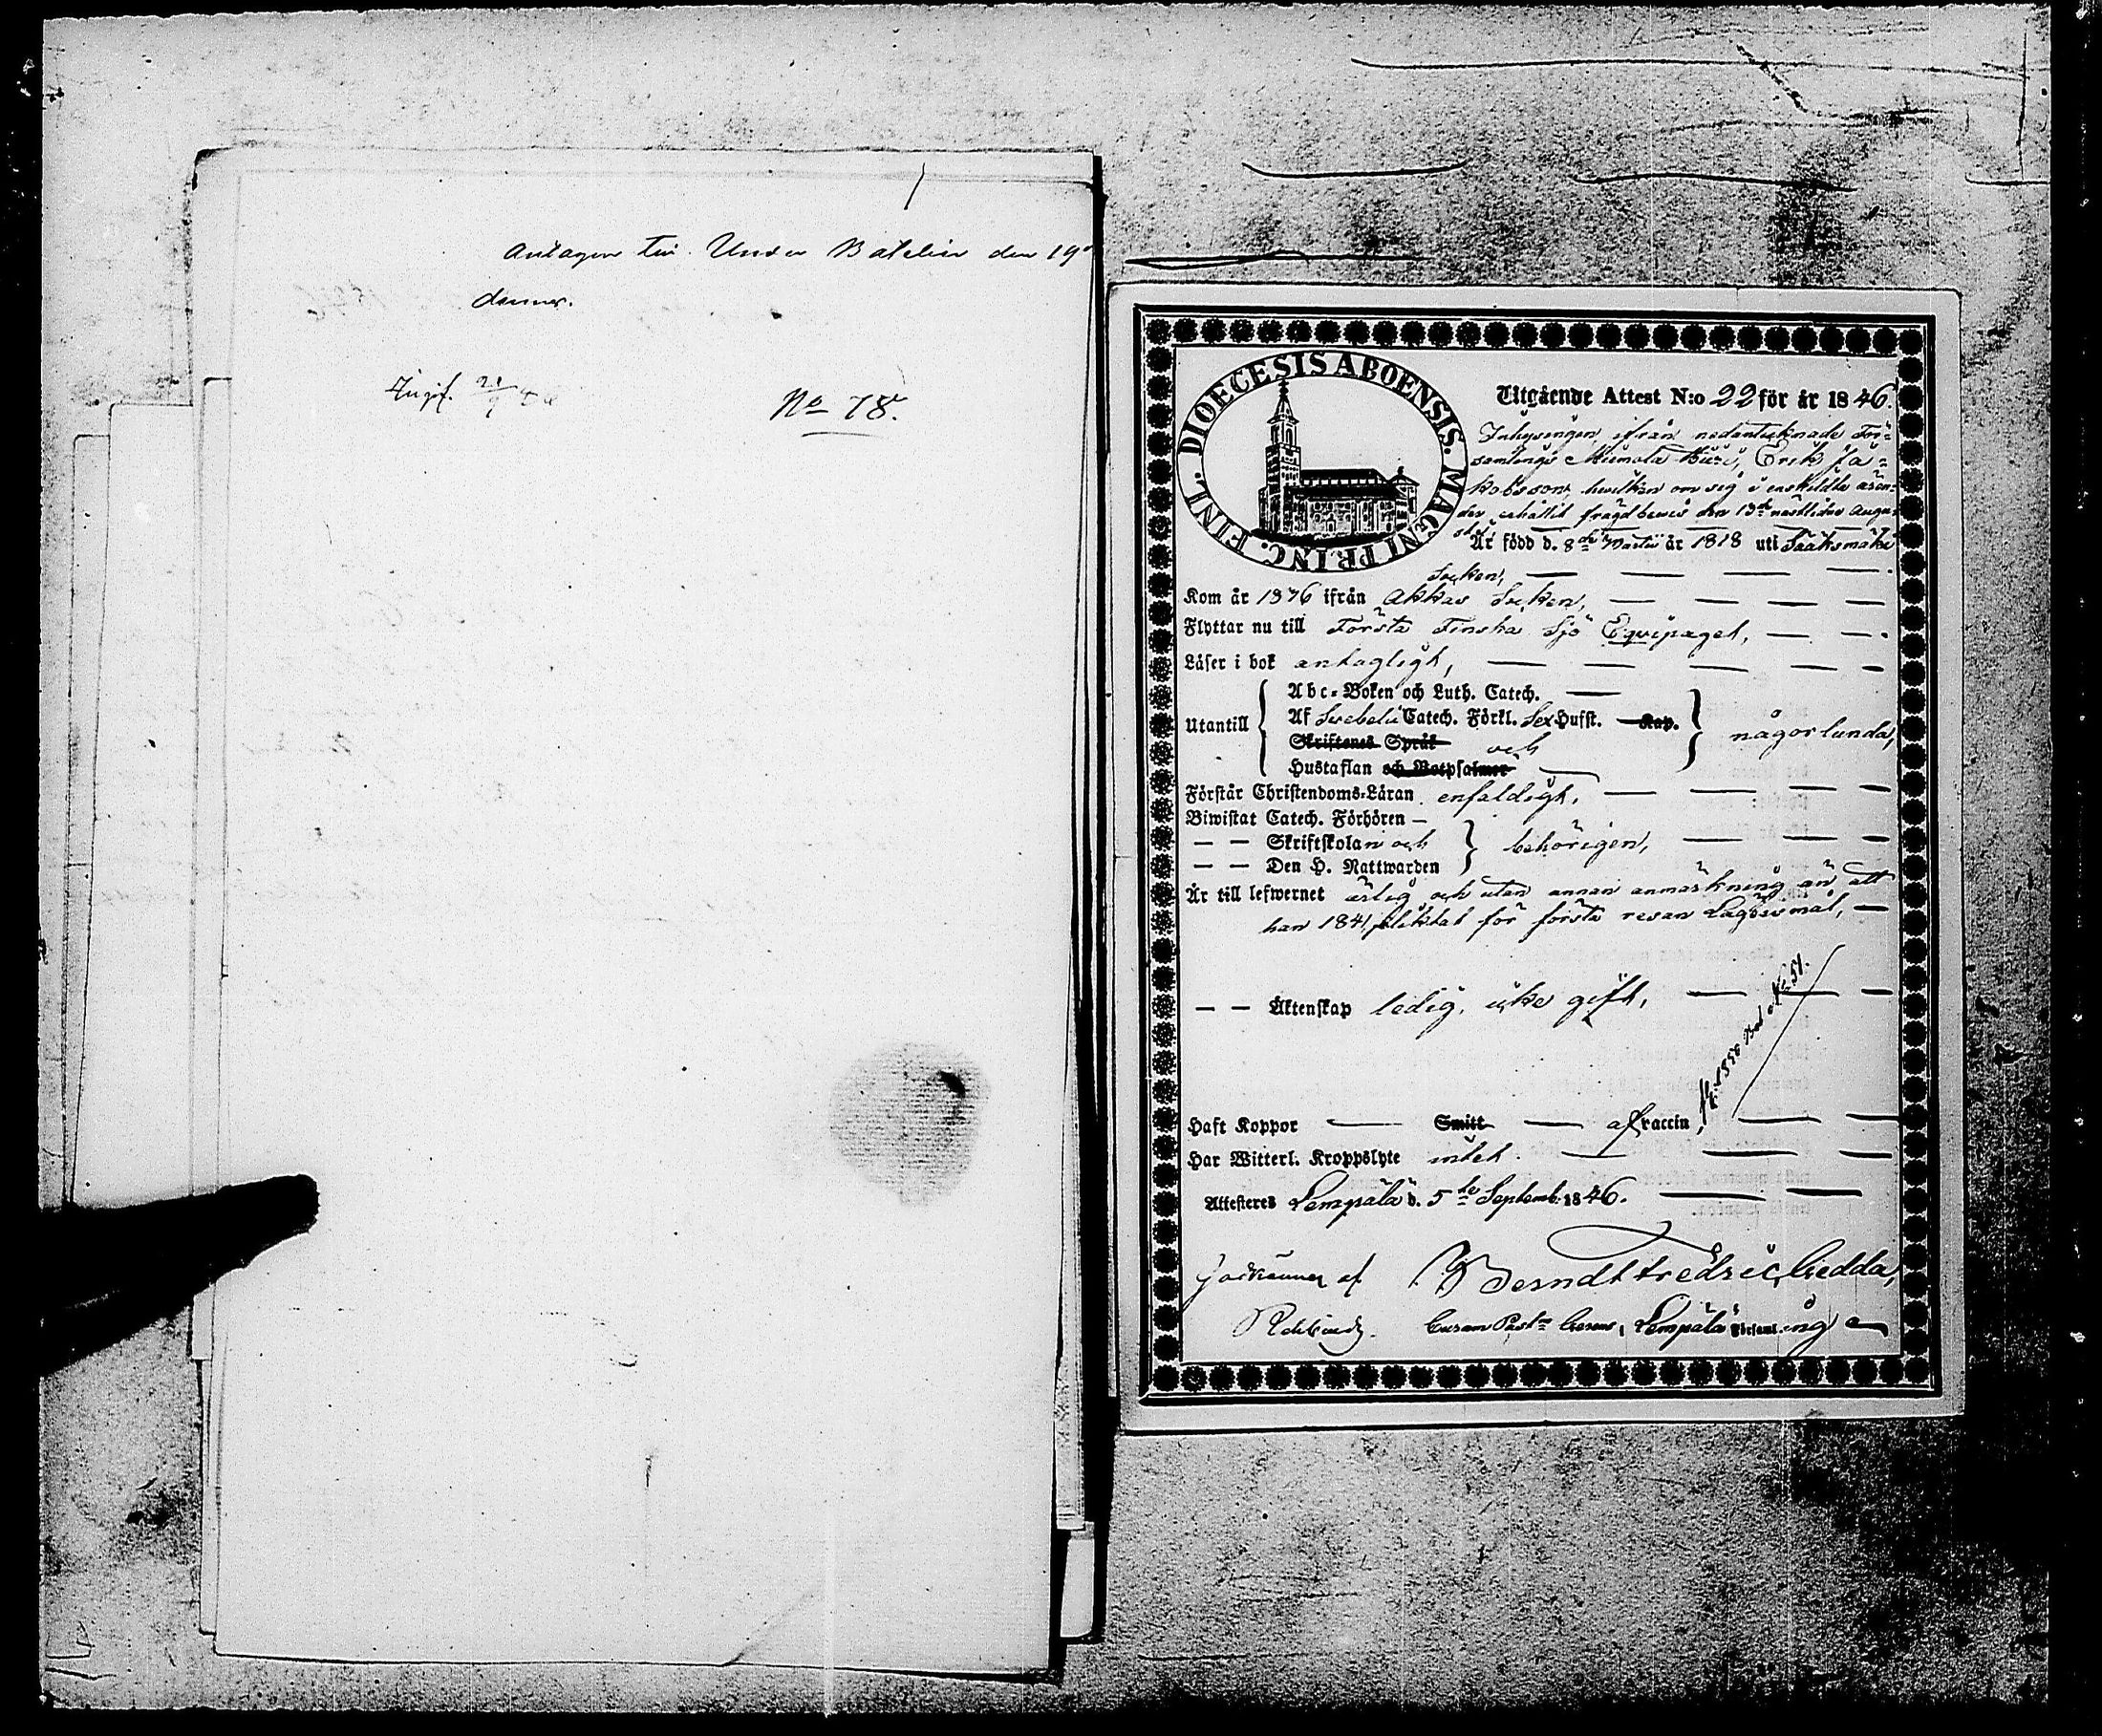 Antagen till Under Båtelev den 19
dennes.
Ingif. 21/9 46
No 78.
DIOECESIS ABOENSIS. MAGNI PRINC. FINL.
Utgående Attest N:o 22 för år 1846.
Inhysingen ifrån nedantecknade För=
samlings Miemola Erik Ja=
kobsson, hwilken om sig i enskildta ären=
der erhållit frägdbewis den 13de nästlidne Augu=
sti
Är född d. 8de Martii år 1818 uti Sääksmäki
Socken,
Kom år 1376 ifrån Akkas Socken,
Flyttar nu till Första Finska Sjö Eqvipaget,
Läser i bok antagligt,
Utantill
Abc-Boken och Luth. Catech.
Af Svebelii Catech. Förkl. Sex Hufst. Kap.
Skriftenes Språk och
Hustaflan och Botpsalmer
någorlunda,
Förstår Christendoms-Läran enfaldigt,
Biwistat Catech. Förhören
— — Skriftskolan och
— — Den H. Nattwarden
behörigen,
Är till lefwernet ärlig och utan annan anmärkning än att
han 1841 pliktat för första resan Lägersmål,
— — Äktenskap ledig, icke gift,
1850 No 51.
Haft Koppor — Smitt — af vaccin,
Har Witterl. Kroppslyte intet.
Attesteres Lempälä d. 5te Septemb. 1846.
Godkännes af
Berndt Fredric Gedda,
Curam Past. Gerens i Lempälä Församling